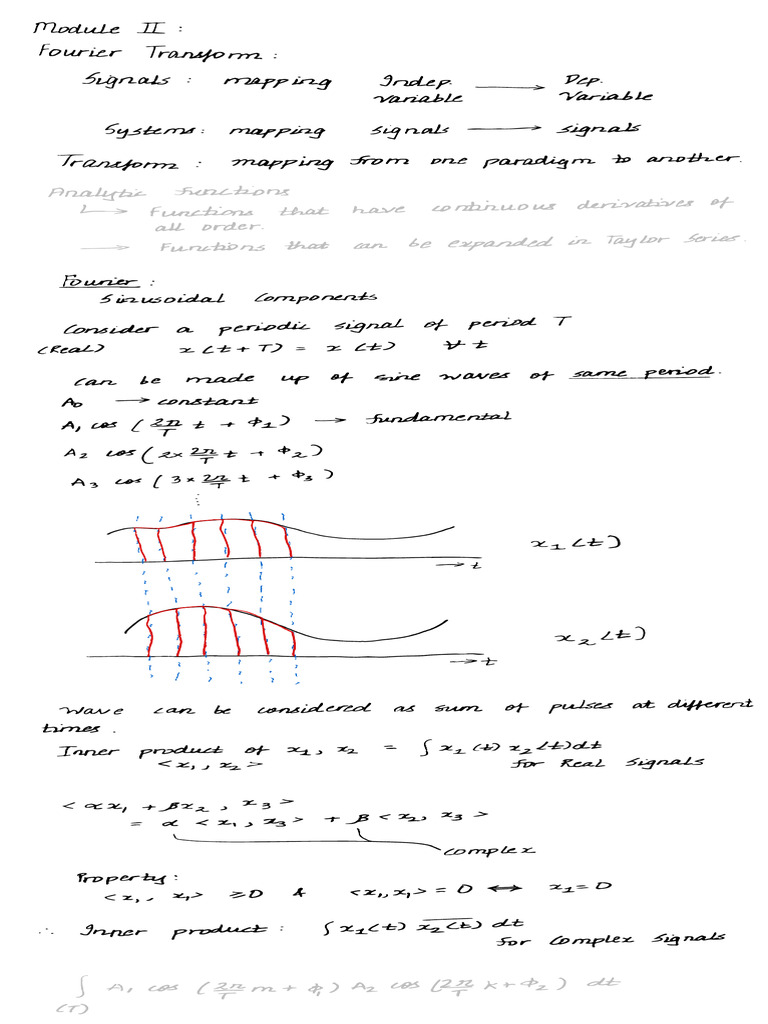 Module II :
Fourier Transform :
Signals : mapping Indep. variable ⟶ Dep. Variable
Systems : mapping signals ⟶ signals
Transform : mapping from one paradigm to another.
Analytic Functions
↳ Functions that have continuous derivatives of
all order.
⟶ Functions that can be expanded in Taylor Series.
Fourier :
Sinusoidal Components
Consider a periodic signal of period T
(Real) x(t+T) = x(t) ∀ t
can be made up of sine waves of same period.
A₀ ⟶ constant
A₁ cos (2π/T t + Φ₁) ⟶ fundamental
A₂ cos (2×2π/T t + Φ₂)
A₃ cos (3×2π/T t + Φ₃)
⋮
x₁(t)
⟶ t
x₂(t)
⟶ t
Wave can be considered as sum of pulses at different
times.
Inner product of x₁, x₂ = ∫ x₁(t) x₂(t) dt
<x₁, x₂> for Real Signals
<αx₁ + βx₂, x₃>
= α <x₁, x₃> + β <x₂, x₃>
complex
Property :
<x₁, x₁> ≥ 0 & <x₁, x₁> = 0 ⟷ x₁ = 0
∴ Inner product : ∫ x₁(t) x̅₂̅(̅t̅)̅ dt
for Complex Signals
∫ A₁ cos (2π/T m + Φ₁) A₂ cos (2π/T k + Φ₂) dt
(T)